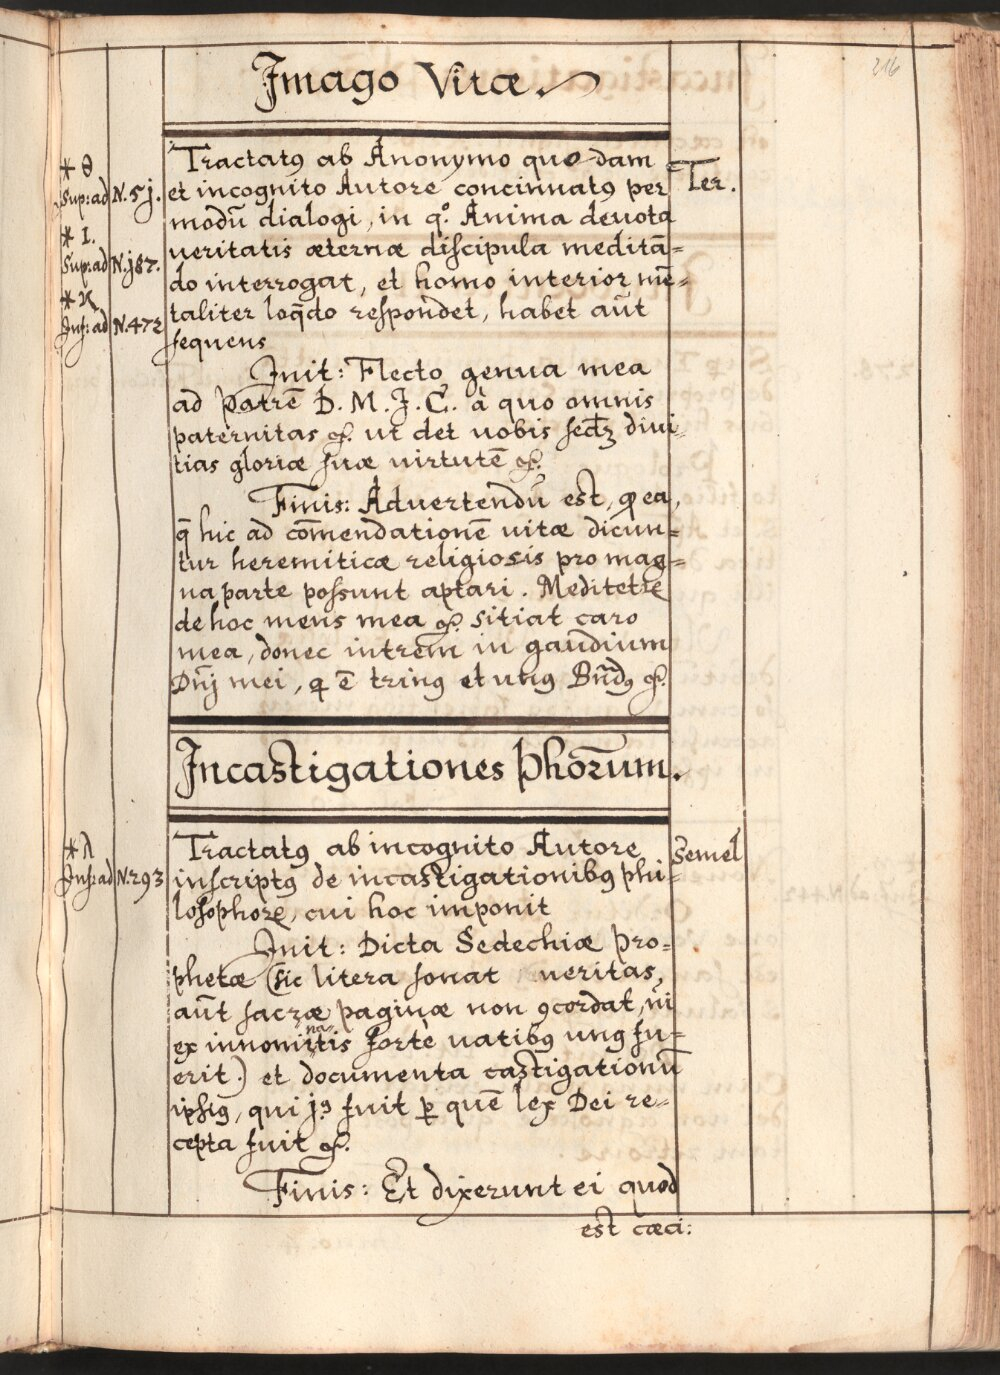 216
Imago Vitæ.
Tractatꝰ ab Anonymo quodam
et incognito Autore concinnatꝰ per
modū dialogi, in qͦ. Anima devota
veritatis æternæ discipula meditā=
do interrogat, et homo interior mē=
taliter loq̄do respondet, habet aūt
sequens
Ter.
* Θ
Sup: ad N. 5j.
* I.
Sup: ad N. j87.
* K
Inf: ad N. 472
Init: Flecto genua mea
ad Patrē D. M. J. C. à quo omnis
paternitas &. ut det vobis secdꝫ divi=
tias gloriæ suæ virtutē &.
Finis: Advertendū est, ꝙ ea,
q̄ hic ad cōmendationē vitæ dicun=
tur heremiticæ religiosis pro mag=
na parte possunt aptari. Meditetꝛ
de hoc mens mea &. sitiat caro
mea, donec intrem in gaudium
Dn̄j mei, q ē trinꝰ et unꝰ Bn̄dꝰ &.
Incastigationes Phōrum.
Tractatꝰ ab incognito Autore
inscriptꝰ de incastigationibꝰ phi=
losophoꝝ, cui hoc imponit
Semel
* Λ
Inf: ad N. 293
Init: Dicta Sedechiæ Pro=
phetæ (sic litera sonat veritas,
aūt sacræ paginæ non ꝯcordat, ni
ex innominatis forte vatibꝰ unꝰ fu=
erit.) et documenta castigationū
ipsiꝰ, qui jꝰ fuit ꝑ quē lex Dei re=
cepta fuit &.
Finis: Et dixerunt ei quod
est cæci: